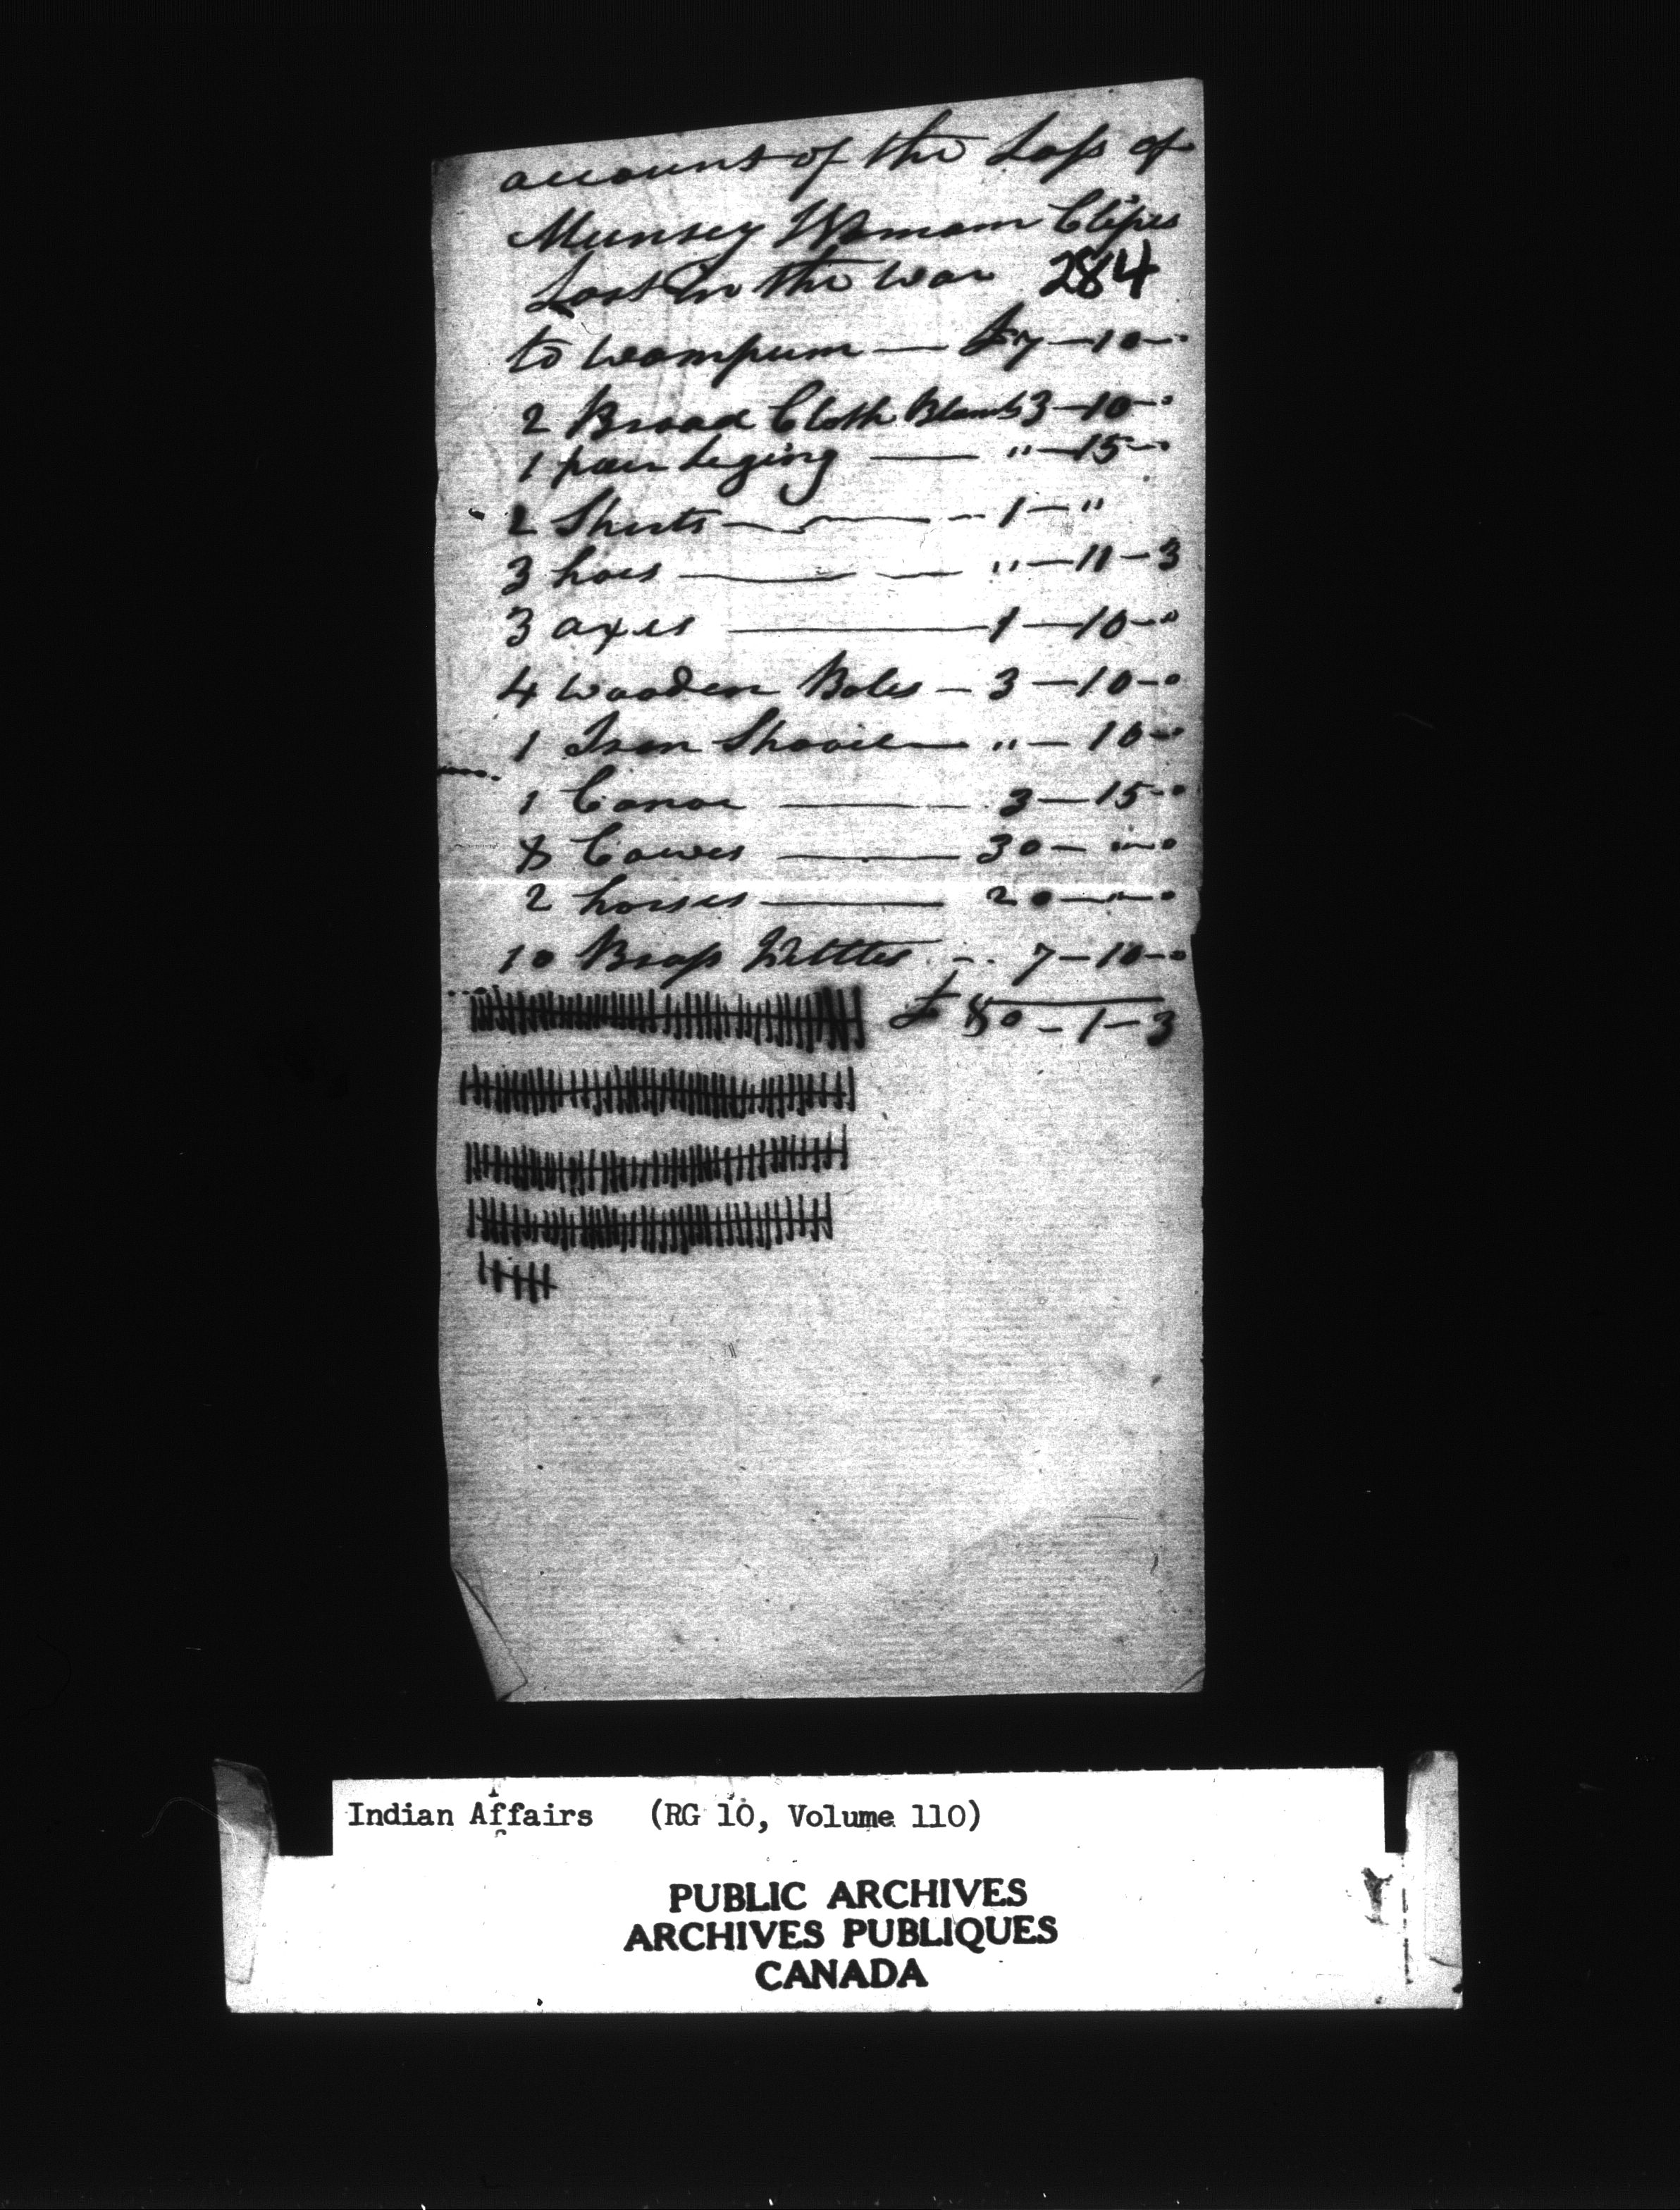 account of the Loss of
Munsey Womam
Lost In the war 284
to wampum — £7 — 10 — "
2 Broad Cloth Blants 3 — 10 — 0
1 pair Leging — " — 15 — 0
2 Shirts — 1 — "
3 hoes — " — 11 — 3
3 axes — 1 — 10 — 0
4 wooden Boles — 3 — 10 — 0
1 Iron Shovel — " — 10 — 0
1 Canoe — 3 — 15 — 0
8 Cowes — 30 — " — 0
2 horses — 20 — " — 0
10 Brass Kittles - - 7 — 10 — 0
£ 80 - 1 - 3
Indian Affairs (RG 10, Volume 110)
PUBLIC ARCHIVES
ARCHIVES PUBLIQUES
CANADA